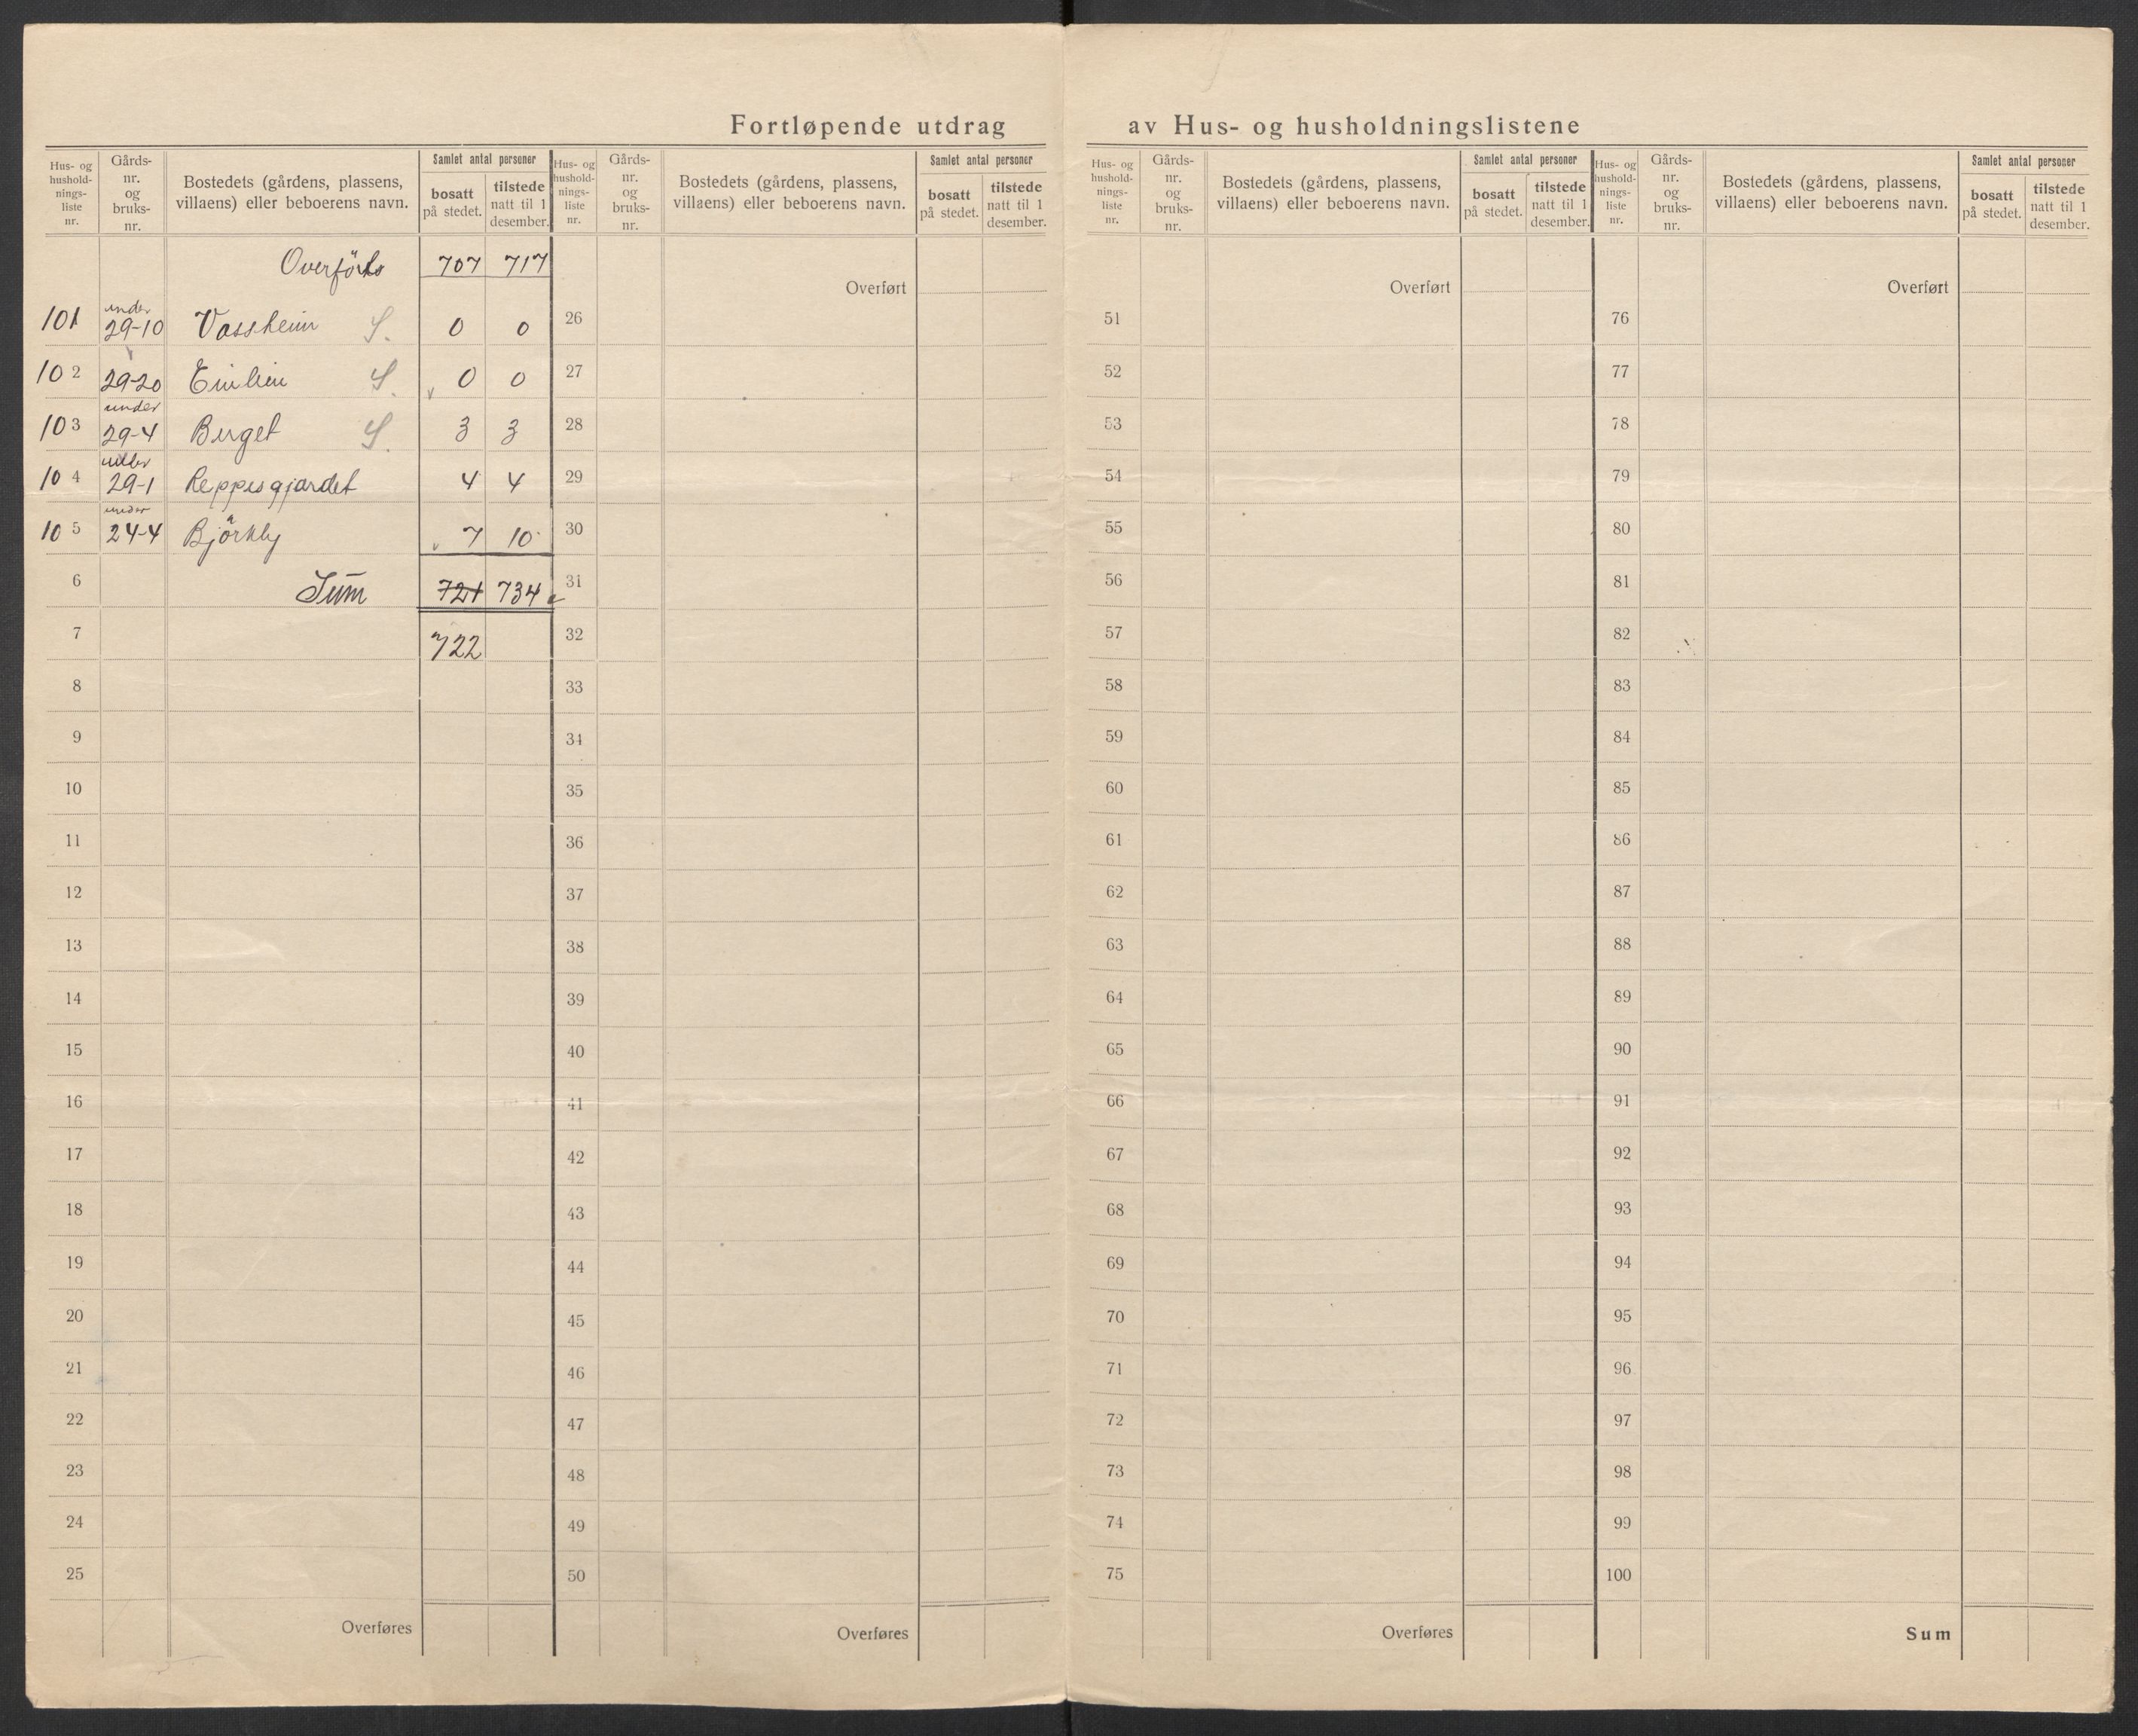 Fortløpende utdrag av Hus- og husholdningslistene
Hus- og hushold-nings-liste nr. Gårds-nr. og bruks-nr. Bostedets (gårdens, plassens, villaens) eller beboerens navn. Samlet antal personer bosatt på stedet. tilstede natt til 1 desember.
Hus- og hushold-nings-liste nr. Gårds-nr. og bruks-nr. Bostedets (gårdens, plassens, villaens) eller beboerens navn. Samlet antal personer bosatt på stedet. tilstede natt til 1 desember.
Hus- og hushold-nings-liste nr. Gårds-nr. og bruks-nr. Bostedets (gårdens, plassens, villaens) eller beboerens navn. Samlet antal personer bosatt på stedet. tilstede natt til 1 desember.
Hus- og hushold-nings-liste nr. Gårds-nr. og bruks-nr. Bostedets (gårdens, plassens, villaens) eller beboerens navn. Samlet antal personer bosatt på stedet. tilstede natt til 1 desember.
707 717
101 under 29-10 Vossheim S. 0 0
102 29-20 S. 0 0
103 under 29-4 Berget S. 3 3
104 under 29-1 Reppesgjardet 4 4
105 under 24-4 Björkly 7 10
6 Sum 721 734
7 722
8
9
10
11
12
13
14
15
16
17
18
19
20
21
22
23
24
25
Overføres
Overført
26
27
28
29
30
31
32
33
34
35
36
37
38
39
40
41
42
43
44
45
46
47
48
49
50
Overføres
Overført
51
52
53
54
55
56
57
58
59
60
61
62
63
64
65
66
67
68
69
70
71
72
73
74
75
Overføres
Overført
76
77
78
79
80
81
82
83
84
85
86
87
88
89
90
91
92
93
94
95
96
97
98
99
100
Sum